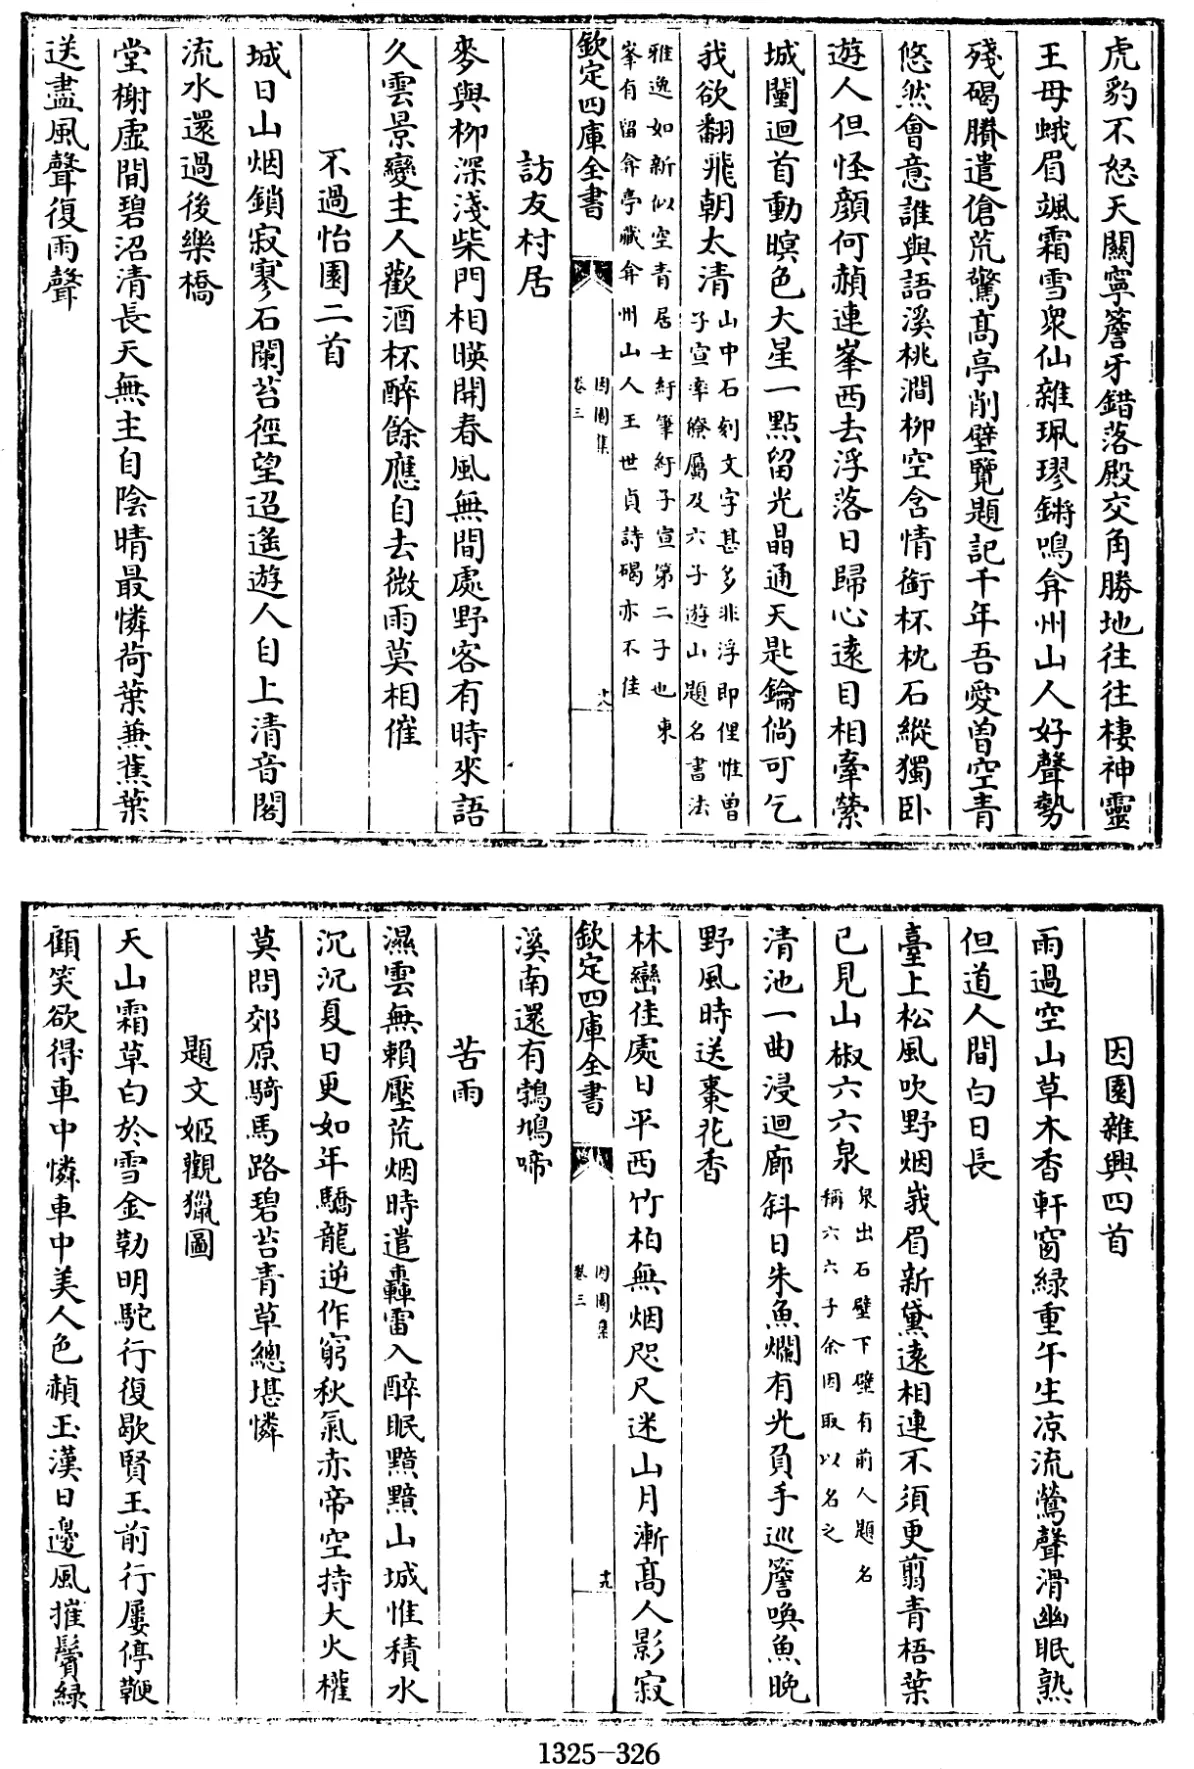 虎豹不怒天關寧簷牙錯落殿交角勝地往往棲神靈
王母蛾眉颯霜雪衆仙雜珮璆鏘鳴弇州山人好聲勢
殘碣賸遣傖荒驚髙亭削壁覽題記千年吾愛曽空青
悠然會意誰與語溪桃澗栁空含情銜杯枕石縱獨卧
遊人但怪顔何頳連峯西去浮落日歸心遠目相牽縈
城闉迴首動暝色大星一㸃留光晶通天匙鑰倘可乞
我欲翻飛朝太清
山中石刻文字甚多非浮即俚惟曽
子宣率僚屬及六子遊山題名書法
雅逸如新似空青居士紆筆紆子宣第二子也東
峯有留弇亭藏弇州山人王世貞詩碣亦不佳
欽定四庫全書
因園集
卷三
十八
訪友村居
麥與栁深淺柴門相暎開春風無間處野客有時來語
久雲景變主人歡酒杯醉餘應自去微雨莫相催
不過怡園二首
城日山烟鎖寂寥石闌苔徑望迢遥遊人自上清音閣
流水還過後樂橋
堂榭虚閒碧沼清長天無主自陰晴最憐荷葉兼蕉葉
送盡風聲復雨聲
因園雜興四首
雨過空山草木香軒窗緑重午生凉流鶯聲滑幽眠熟
但道人間白日長
臺上松風吹野烟峩眉新黛遠相連不須更翦青梧葉
已見山椒六六泉
泉出石壁下壁有前人題名
稱六六子余因取以名之
清池一曲浸迴廊斜日朱魚爛有光負手巡簷喚魚晚
野風時送棗花香
林巒佳處日平西竹柏無烟咫尺迷山月漸髙人影寂
欽定四庫全書
因園集
卷三
十九
溪南還有鵓鳩啼
苦雨
濕雲無賴壓荒烟時遣轟雷入醉眠黯黯山城惟積水
沉沉夏日更如年驕龍逆作窮秋氣赤帝空持大火權
莫問郊原騎馬路碧苔青草總堪憐
題文姬觀獵圖
天山霜草白於雪金勒明駝行復歇賢王前行屢停鞭
顧笑欲得車中憐車中美人色頳玉漢日邊風摧鬢緑
1325-326